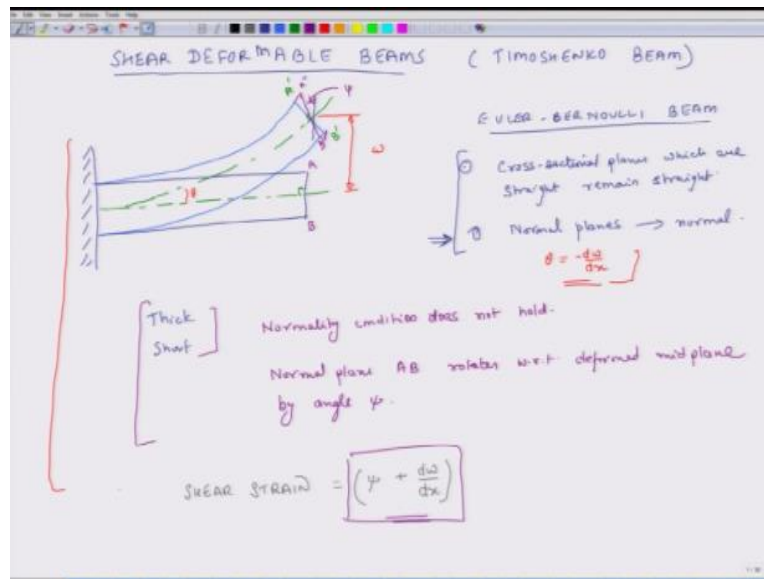 SHEAR DEFORMABLE BEAMS ( TIMOSHENKO BEAM)
A' A'' ψ
B'
ω
θ
A
B
EULER-BERNOULLI BEAM
Cross-sectional planes which are
straight remain straight.
Normal planes → normal.
θ = -dω/dx
Thick
Short
Normality condition does not hold.
Normal plane AB rotates w.r.t deformed midplane
by angle ψ.
SHEAR STRAIN = (ψ + dω/dx)